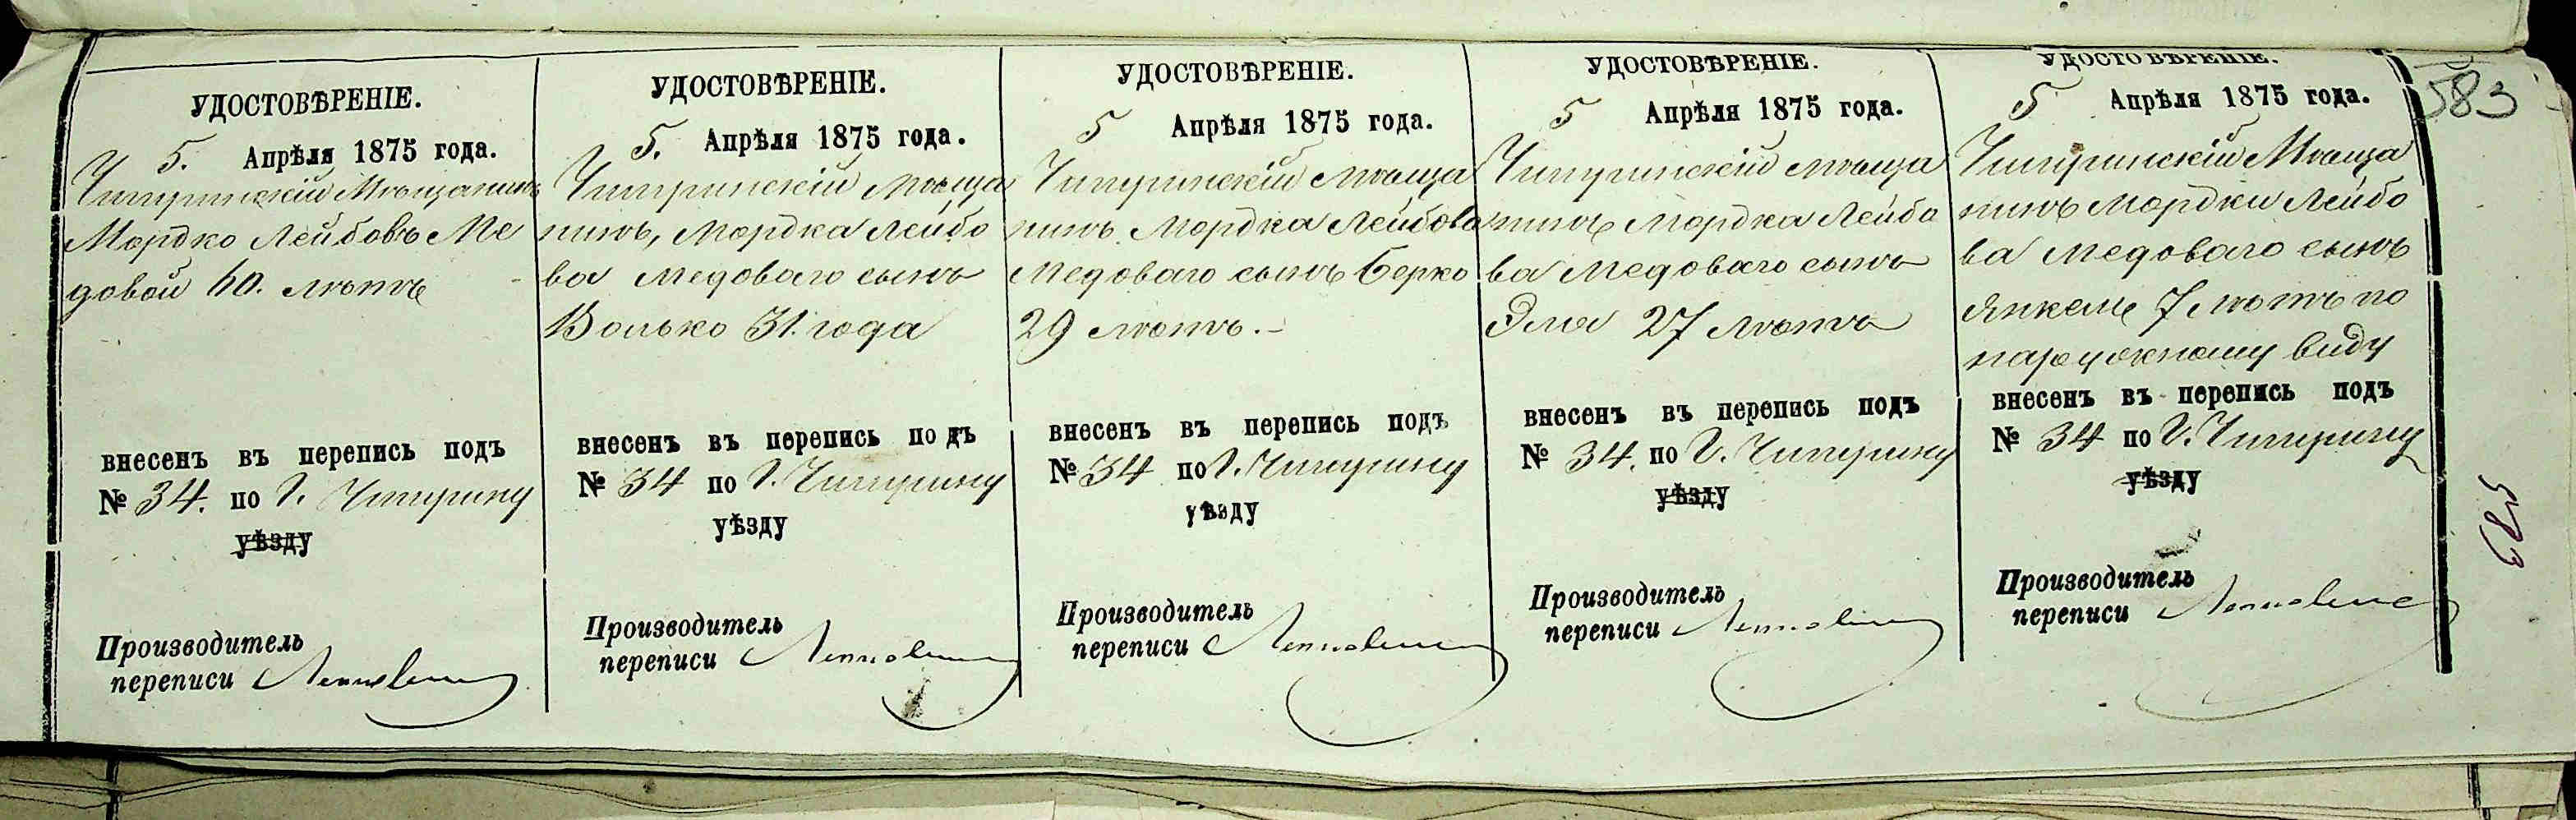 УДОСТОВѢРЕНІЕ.
5. Апрѣля 1875 года.
Чигиринскій Мѣщанинъ
Мордко Лейбовъ Ме
довой 60. лѣтъ
внесенъ въ перепись подъ
№ 34. по Г. Чигирину
уѣзду
Производитель
переписи
УДОСТОВѢРЕНІЕ.
5. Апрѣля 1875 года.
Чигиринскій мѣща
нинъ, Мордка Лейбо
ва Медоваго сынъ
Волько 31. года
внесенъ въ перепись подъ
№ 34 по Г. Чигирину
уѣзду
Производитель
переписи
УДОСТОВѢРЕНІЕ.
5 Апрѣля 1875 года.
Чигиринскій мѣща
нинъ Мордка Лейбова
Медоваго сынъ Берко
29 лѣтъ. -
внесенъ въ перепись подъ
№ 34 по Г. Чигирину
уѣзду
Производитель
переписи
УДОСТОВѢРЕНІЕ.
5 Апрѣля 1875 года.
Чигиринскій мѣща
нинъ Мордка Лейбо
ва Медоваго сынъ
Эля 27 лѣтъ
внесенъ въ перепись подъ
№ 34. по Г. Чигирину
уѣзду
Производитель
переписи
УДОСТОВѢРЕНІЕ.
5 Апрѣля 1875 года.
Чигиринскій Мѣща
нинъ Мордки Лейбо
ва Медоваго сынъ
Янкель 7 лѣтъ по
наружному виду
внесенъ въ перепись подъ
№ 34 по Г. Чигирину
уѣзду
Производитель
переписи
583
583